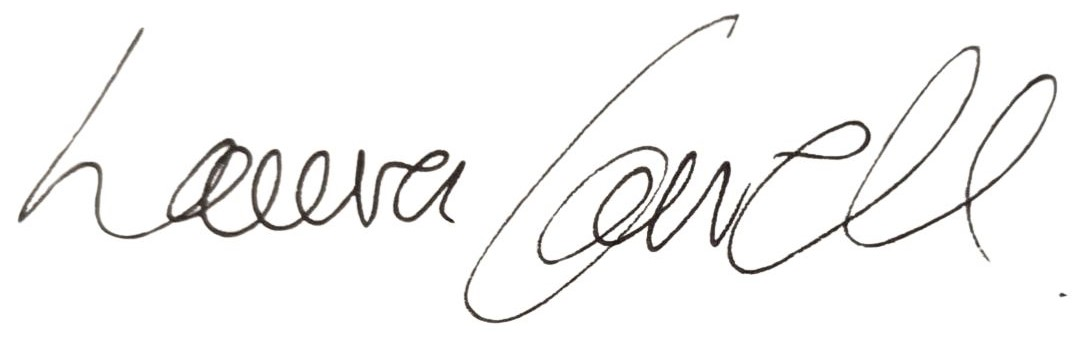 Laura Cowell